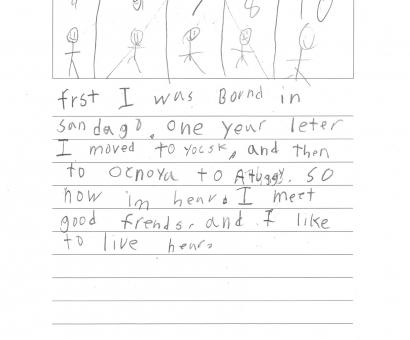 9 8 10
frst I was Bornd in
san dago, one year leter
I moved to yocsk, and then
to ocnoya to Atuggy. so
now im hear. I meet
good frends. and I like
to live hear.